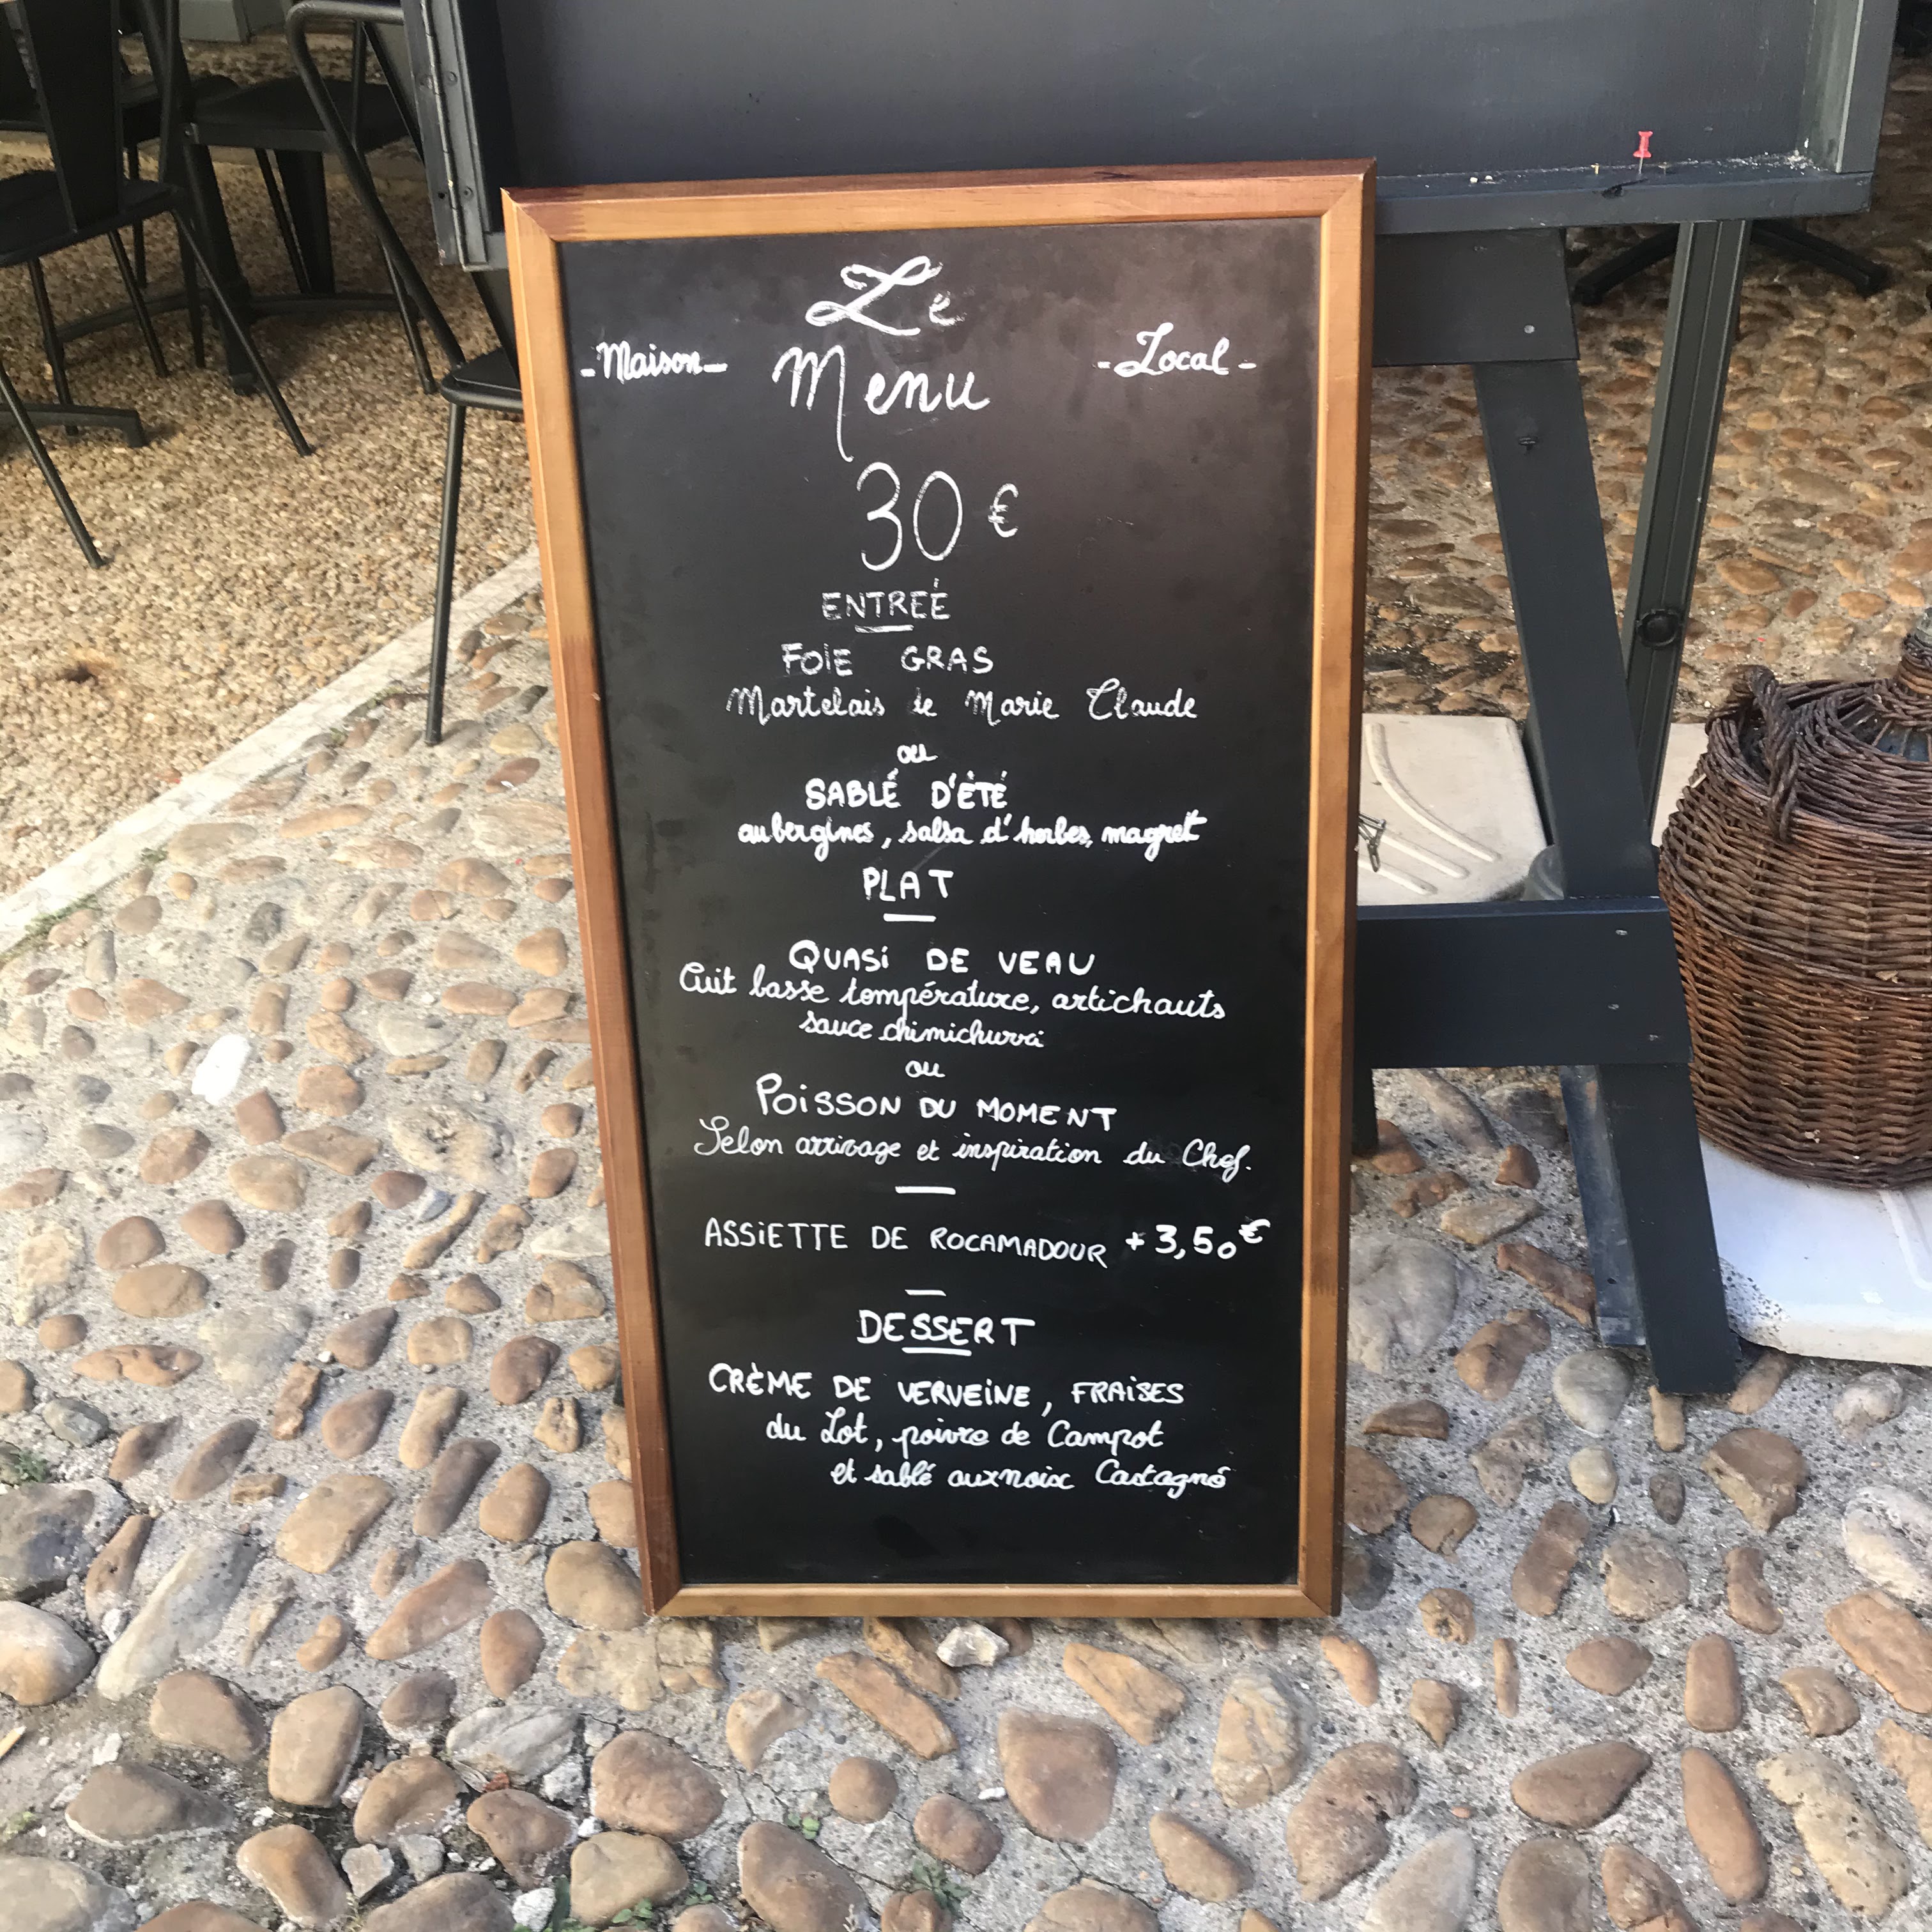 Le
-Maison- Menu -Local-
30 €
ENTREÉ
FOIE GRAS
Martelais de Marie Claude
ou
SABLÉ D'ÉTÉ
aubergines, salsa d'herbes, magret
PLAT
QUASI DE VEAU
Cuit basse température, artichauts
sauce chimichurri
ou
POISSON DU MOMENT
Selon arrivage et inspiration du Chef.
ASSIETTE DE ROCAMADOUR + 3,50€
DESSERT
CRÈME DE VERVEINE, FRAISES
du Lot, poivre de Campot
et sablé aux noix Castagné